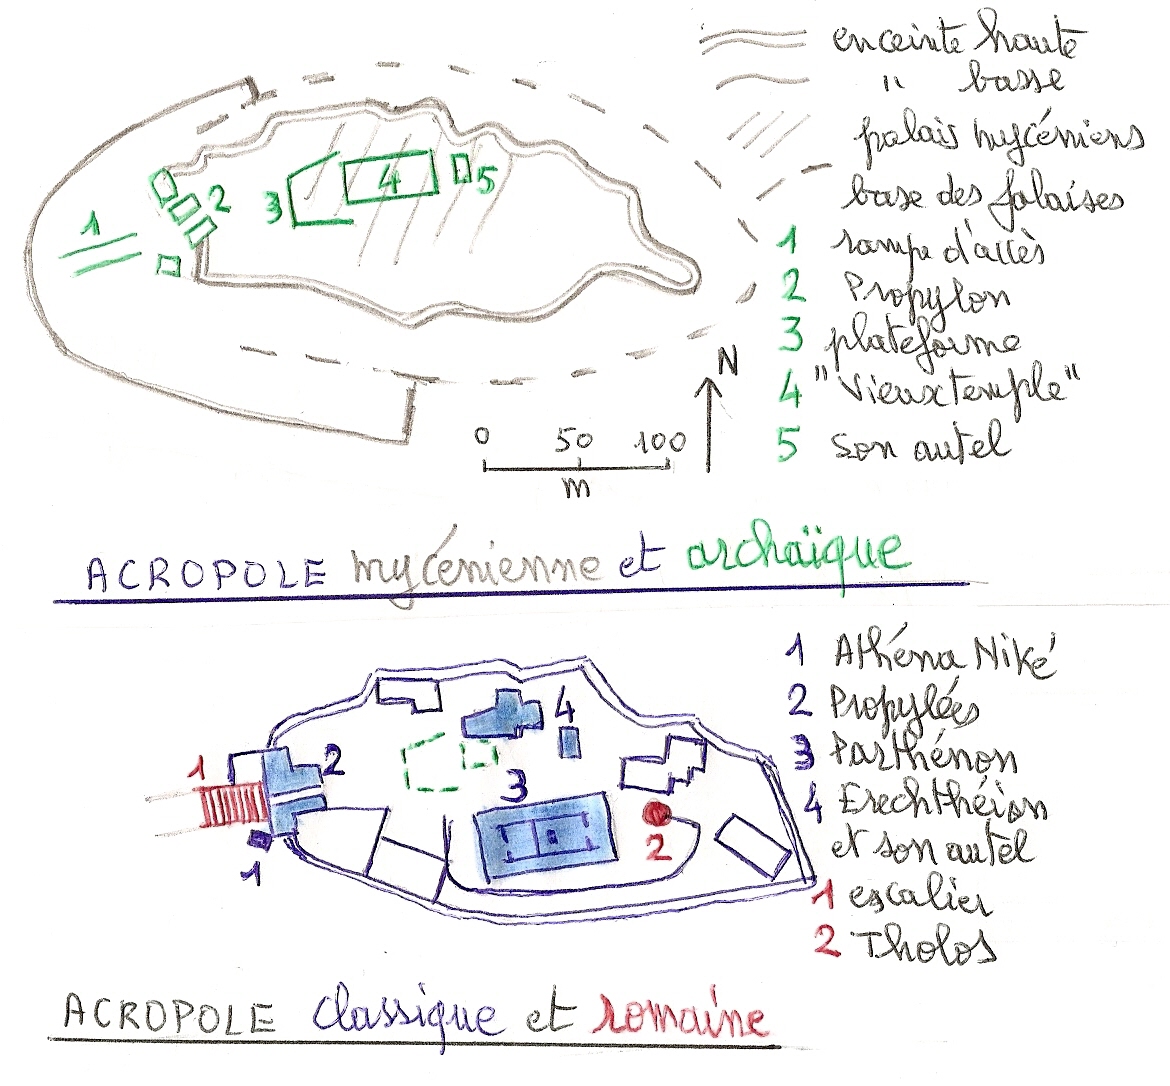 enceinte haute
" basse
palais mycéniens
base des falaises
1 rampe d'accès
2 Propylon
3 plateforme
4 "Vieux temple"
5 son autel
1
2
3
4
5
N
0 50 100
m
ACROPOLE mycénienne et archaïque
1 Athéna Niké
2 Propylées
3 Parthénon
4 Erechthéion
et son autel
1 escalier
2 Tholos
4
1
2
3
2
1
ACROPOLE classique et romaine